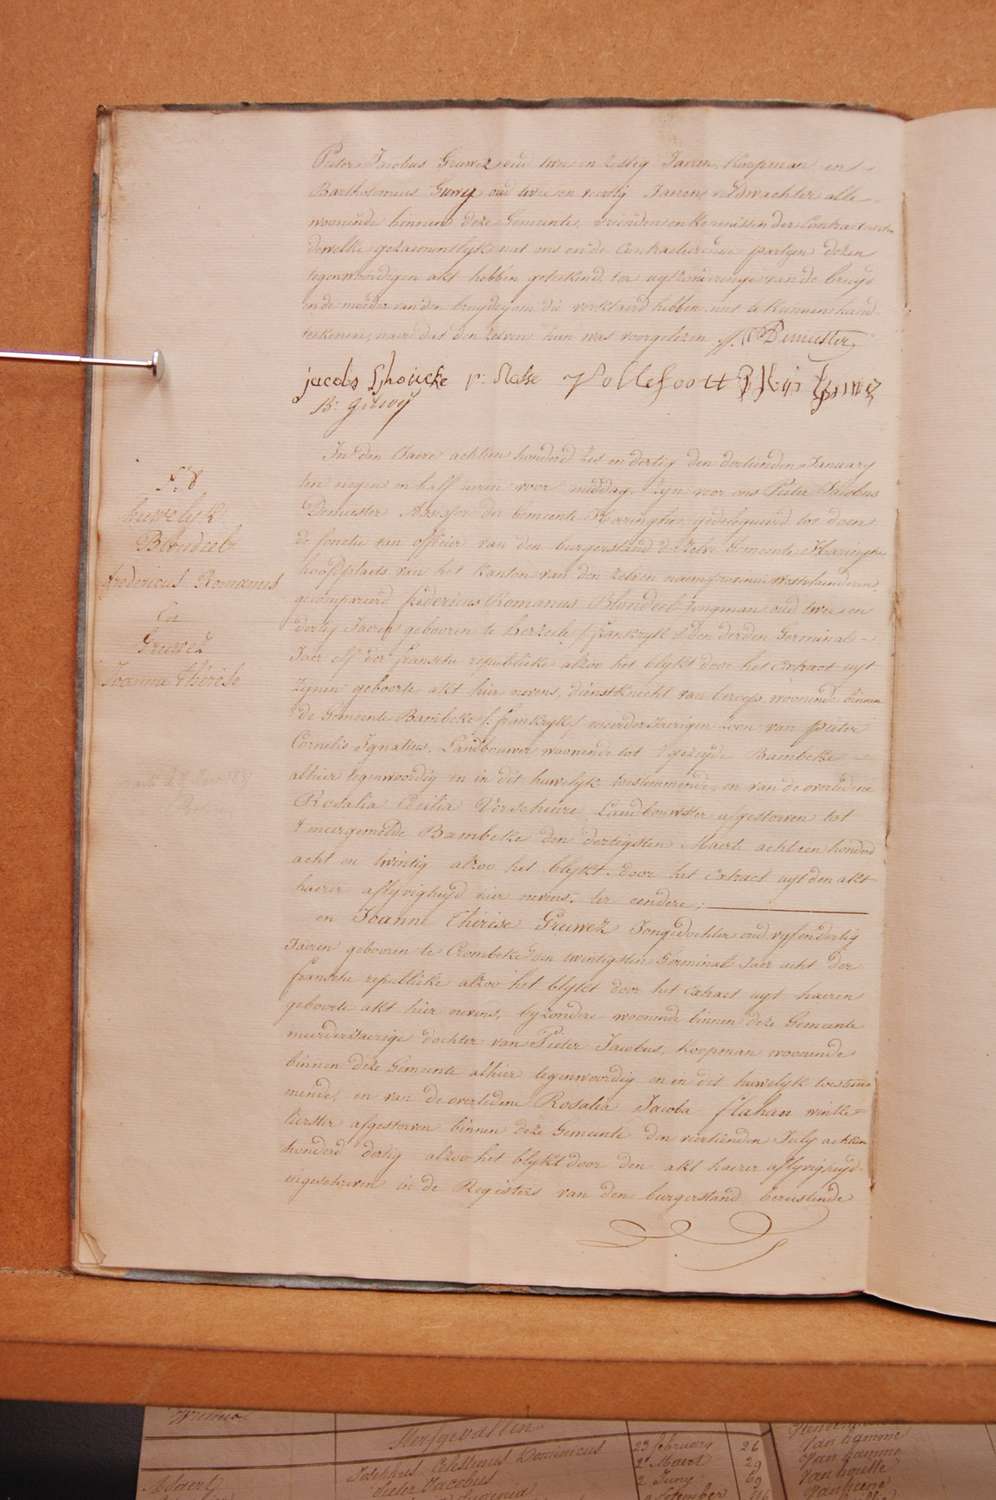 Pieter Jacobus Gruwez oud twee en zestig Jaeren, Koopman en
Bartholomeus Guwy oud twee en veertig Jaeren veldwachter alle
woonende binnen deze Gemeente, vrienden en kennissen der Contractanten
dewelke gezaementlyk met ons en de Contracteerende partyen dezen
tegenwoordigen akt hebben geteekend, ter uytzonderinge van de bruyd
en de moeder van den bruydegom die verklaerd hebben niet te kunnen hand
teekenen, naer dat den zelven hun was voorgelezen J. Demeester
jacobs Shoucke
Vollefoott
Gruwez
B: guwy
In den Jaere achtien honderd zes en dertig den dertienden January
ten negen en half uren voor middag, zyn voor ons Pieter Jacobus
Demeester Assessor der Gemeente Haringhe, gedelegueerd tot doen
de functie van officier van den burgerstand dezelve Gemeente Haringhe
hoofdplaets van het kanton van den zelven naem provincie Westvlaenderen,
gecompareerd fredericus Romanus Blondeel Jongman oud twee en
dertig Jaeren gebooren te herzeele (frankryk) den derden Germinal
Jaer elf der fransche republieke alzoo het blykt door het Extract uyt
zynen geboorte akt hier nevens, dienstknecht van beroep woonende binnen
de Gemeente Bambeke (frankryk) meerderJaerigen zoon van pieter
Cornelis Ignatius, Landbouwer woonende tot Bambeke
alhier tegenwoordig en in dit huwelyk toestemmende, en van de overledene
Rosalia Cecilia Verscheure Landbouwster afgestorven tot
t meergemelde Bambeke den dertigsten Maert achtien honderd
acht en twintig alzoo het blykt door het Extract uyt den akt
haerer aflyvigheyd hier nevens, ter eendere;
en Joanne Thérèse Gruwez Jongedochter oud vyf en dertig
Jaeren gebooren te Crombeke den twintigsten Germinal Jaer acht der
fransche republieke alzoo het blykt door het Extract uyt haeren
geboorte akt hier nevens, byzondere woonende binnen deze Gemeente
meerderJaerige dochter van Pieter Jacobus, Koopman woonende
binnen deze Gemeente alhier tegenwoordig en in dit huwelyk toestem
mende, en van de overledene Rosalia Jacoba flahau winke=
lierster afgestorven binnen deze Gemeente den veertienden July achtien
honderd dertig alzoo het blykt door den akt haerer aflyvigheyd
ingeschreven in de Registers van den burgerstand berustende
huwelyk
Blondeel
fredericus Romanus
En
Gruwez
Joanna Thérèse
Josephus Celestinus Dominicus
Pieter Jacobus
23 february
2 Maert
2 Juny
26
29
69
Van hamme